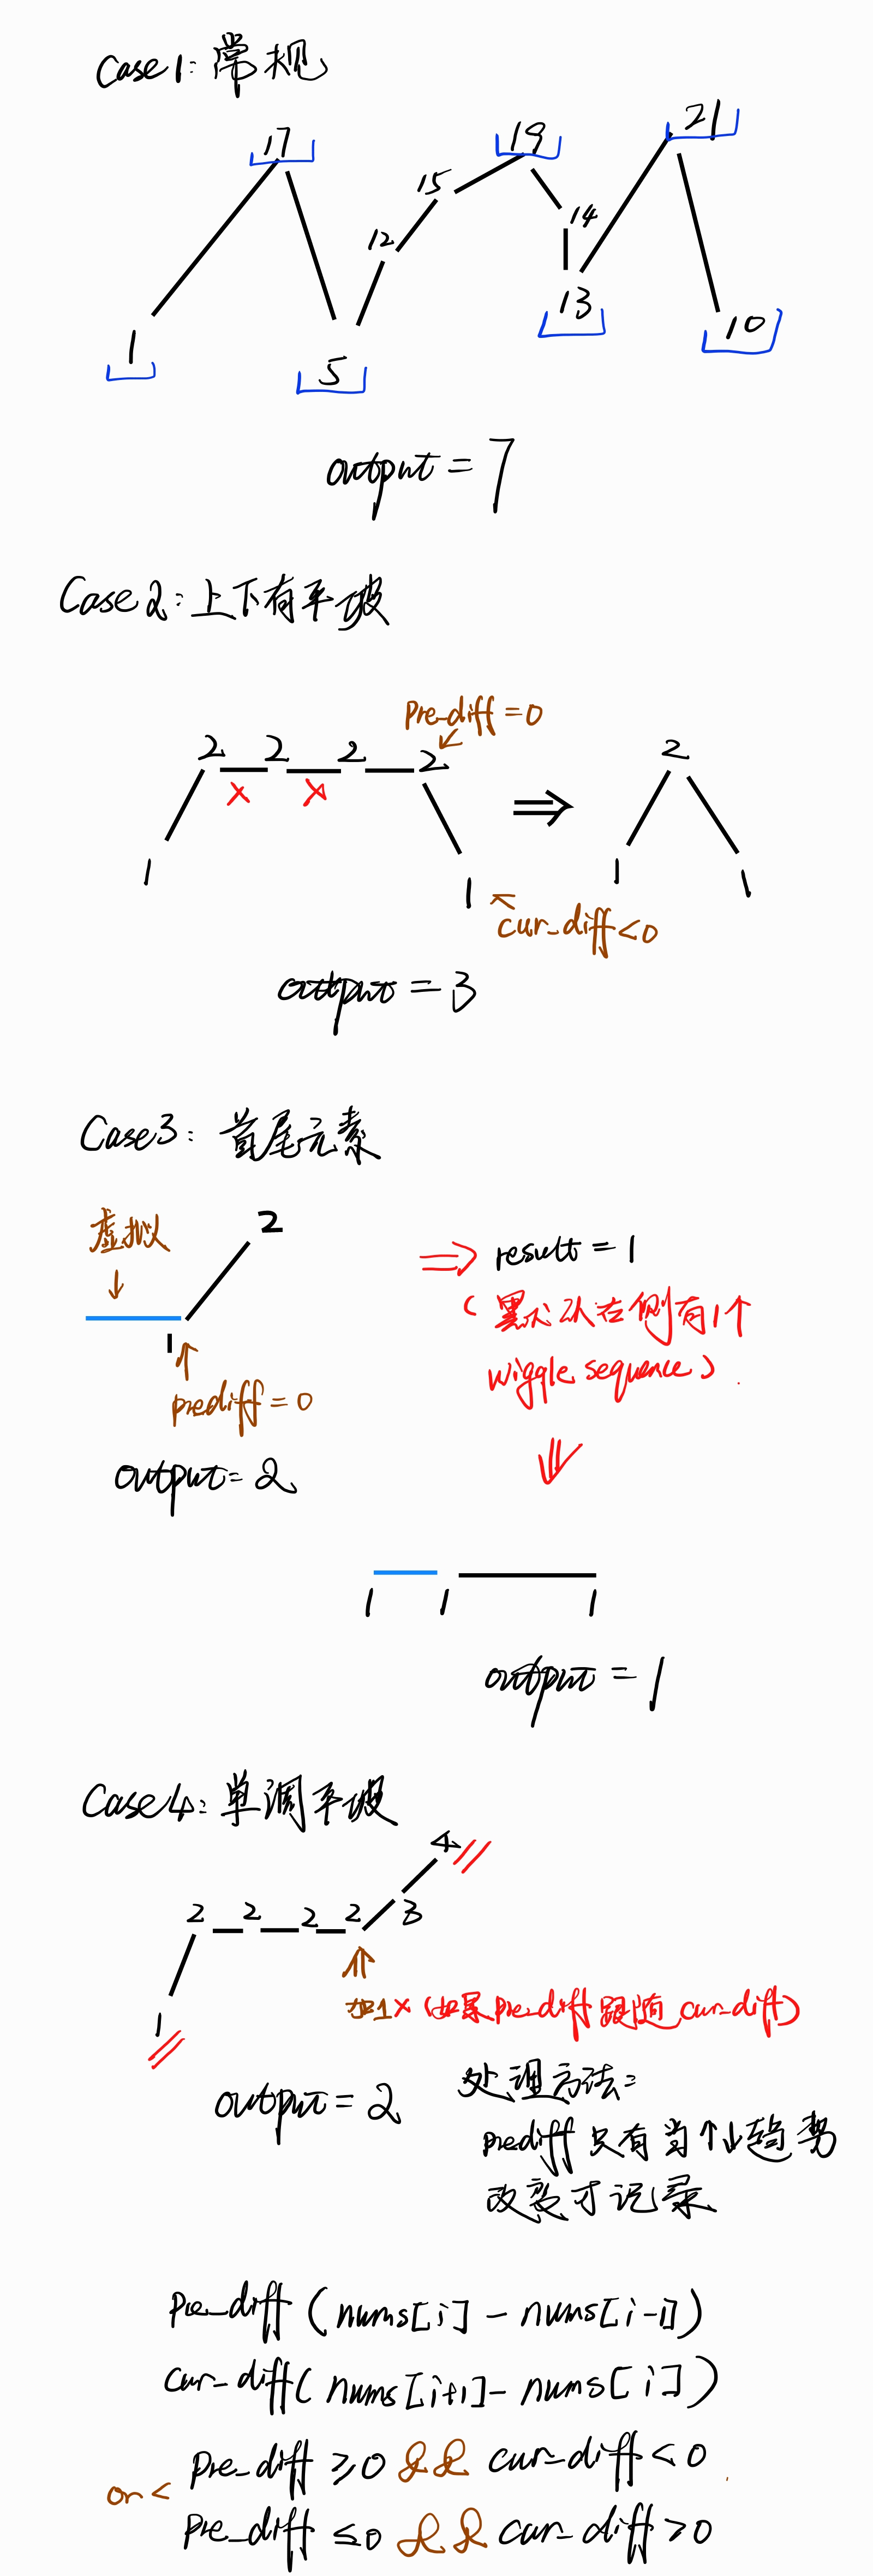 Case1: 常规
17
19
21
15
12
14
1
5
13
10
output = 7
Case2: 上下有平坡
pre_diff = 0
2 2 2 2 ⇒ 2
x x
1 1 1 1
cur_diff < 0
output = 3
Case3: 首尾元素
虚拟
↓
2
1
↑
prediff = 0
output = 2
⇒ result = 1
( 默认右侧有1个
wiggle sequence )
⇓
1 1 1
output = 1
Case4: 单调平坡
4
2 2 2 2 3
1
加1 x (如果pre_diff跟随cur_diff)
output = 2
处理方法:
prediff只有当↑↓趋势
改变才记录
pre_diff (nums[i] - nums[i-1])
cur_diff( nums[i+1] - nums[i])
or < pre_diff ≥ 0 && cur_diff < 0
pre_diff ≤ 0 && cur_diff > 0